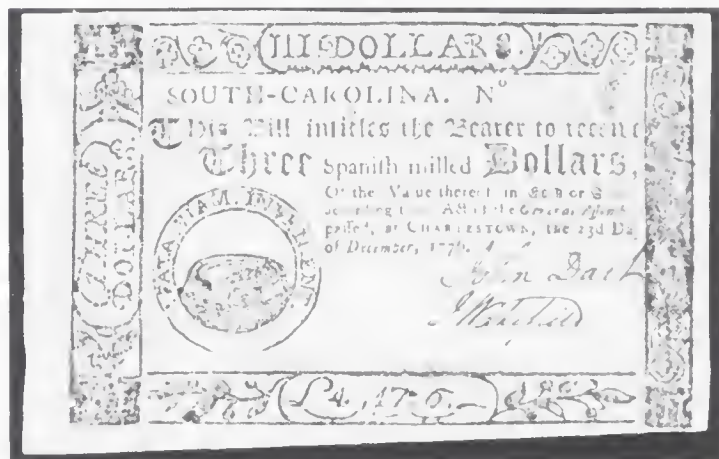 III DOLLARS.
SOUTH-CAROLINA. Nº
This Bill intitles the Bearer to receive
Three Spanish milled Dollars,
Or the Value thereof in Gold or
according to Act of the General
passed, at CHARLESTOWN, the 23d Da
of December, 1776.
THREE
DOLLARS
FATA VIAM INVENIENT
John Dart
£4. 17. 6.